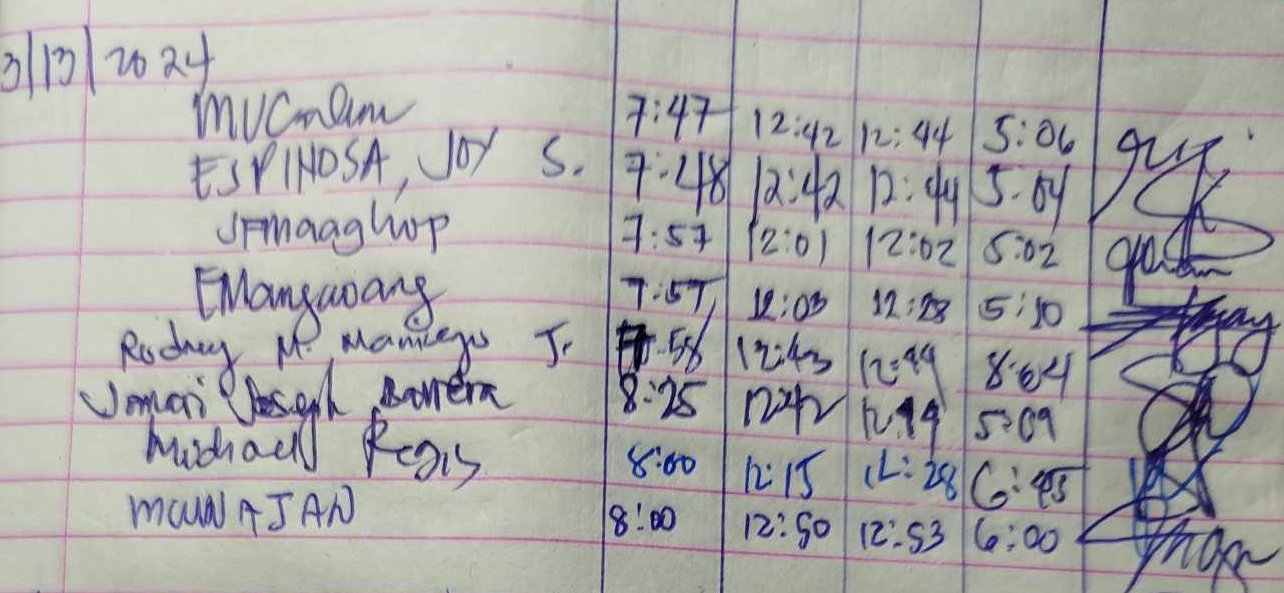 3/13/2024
MVCmalim 7:47 12:42 12:44 5:06
ESPINOSA, JOY S. 7:48 12:42 12:44 5:04
JFmaaghop 7:57 12:01 12:02 5:02
EMangaoang 7:57 12:03 12:28 5:10
Rodney M. Maniego Jr. 7:58 12:43 12:44 8:04
Jomari Joseph Barrera 8:25 12:42 12:44 5:09
Michael Regis 8:00 12:15 12:28 6:45
MCUNAJAN 8:00 12:50 12:53 6:00